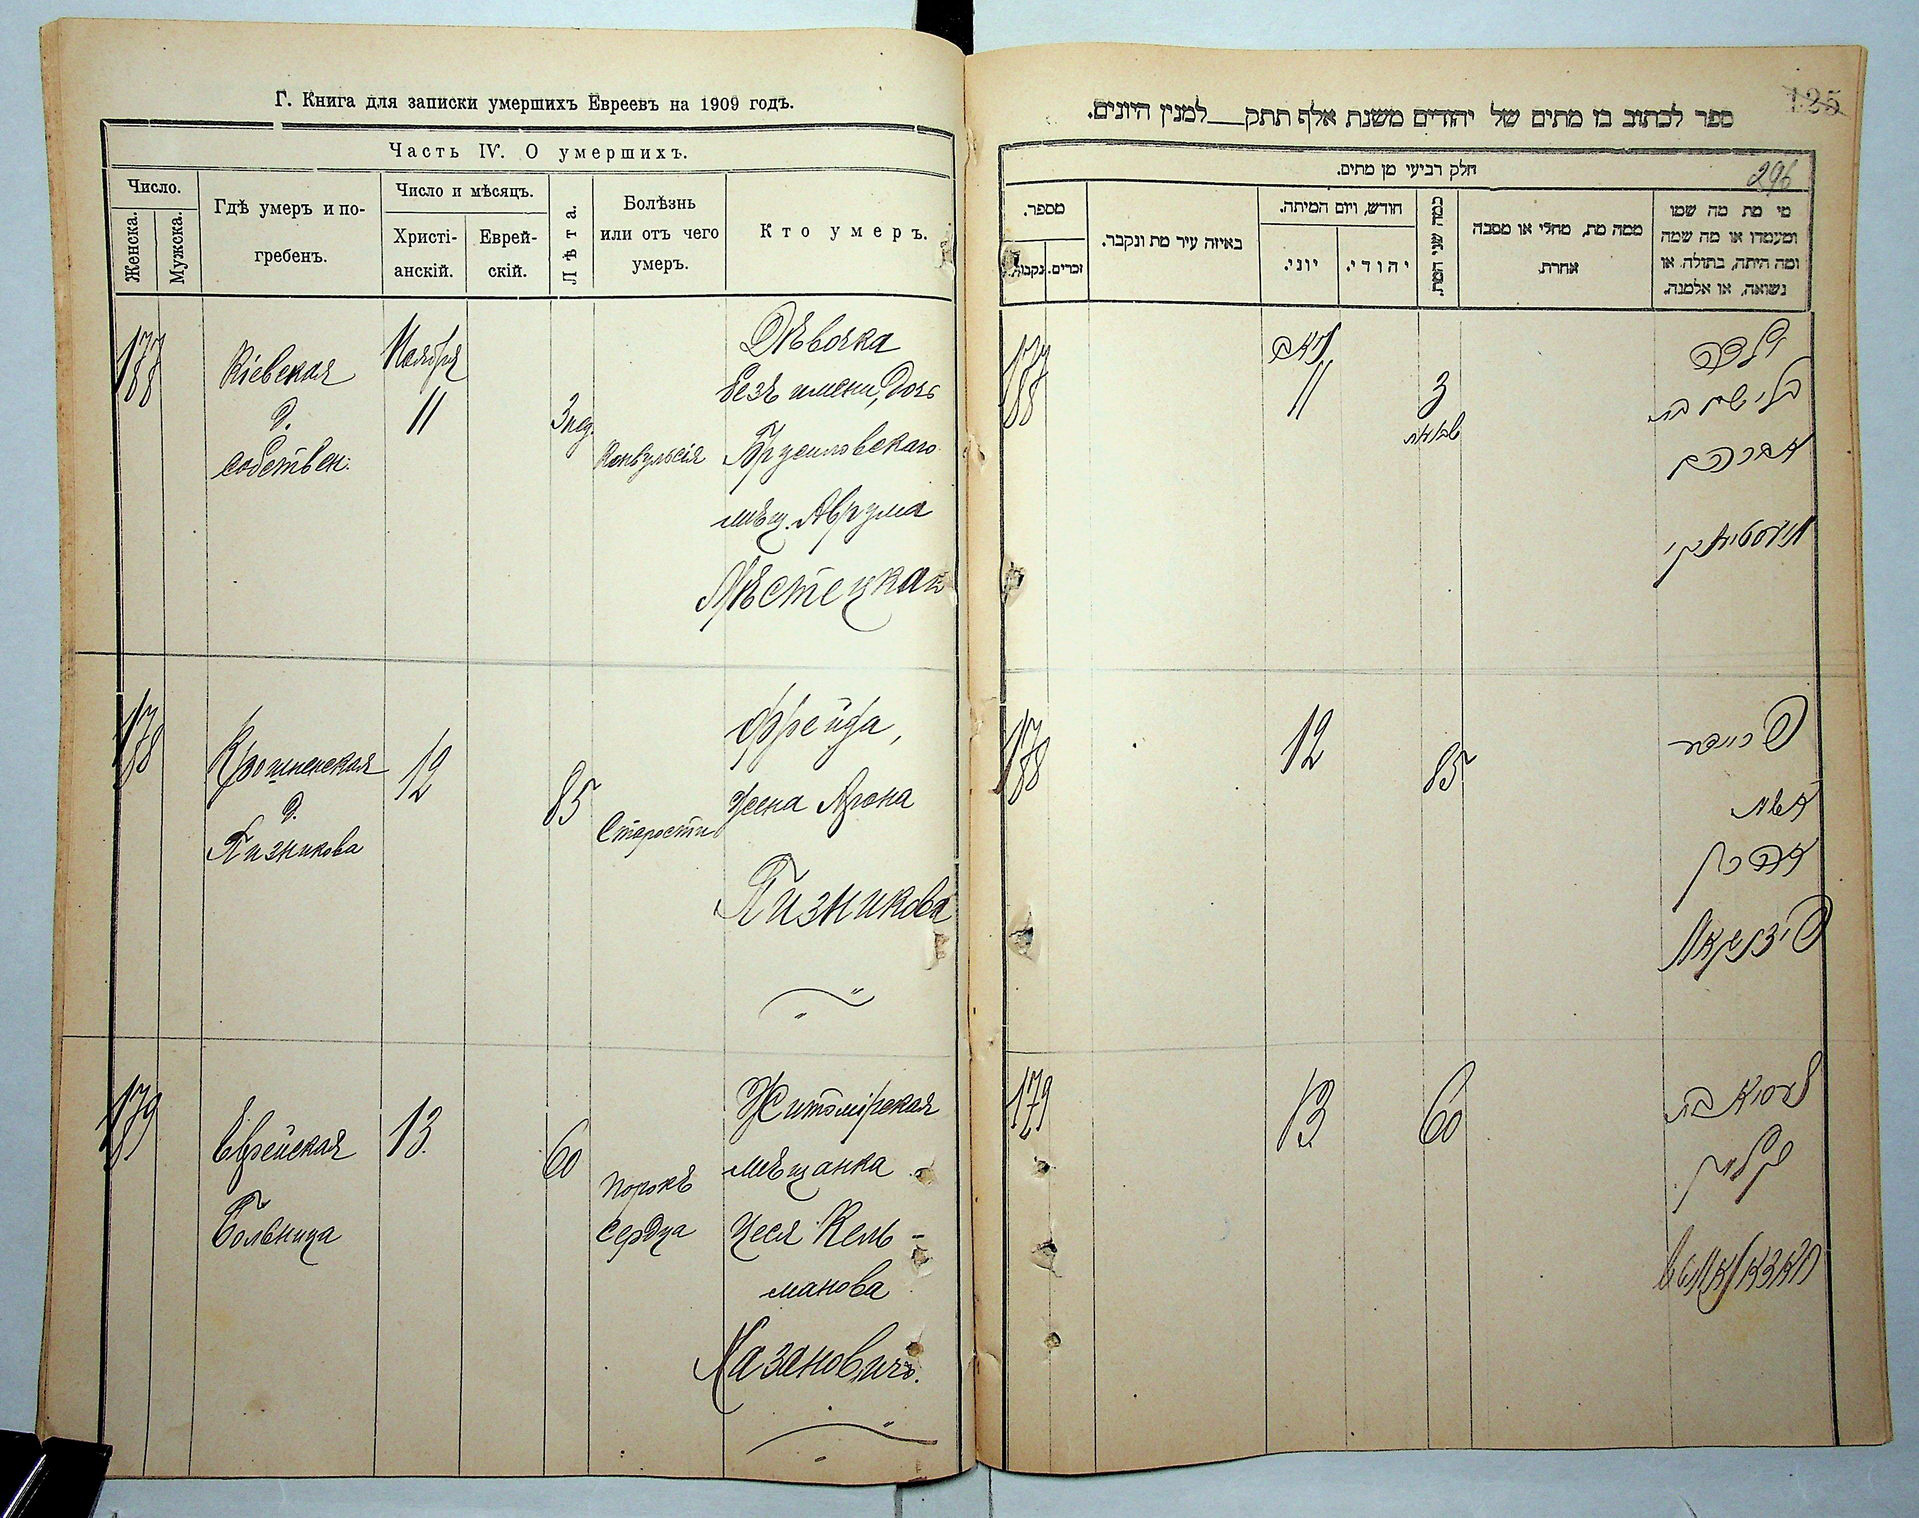 Г. Книга для записки умершихъ Евреевъ на 1909 годъ.
Часть IV. О умершихъ.
Число.
Женска.
Мужска.
Гдѣ умеръ и по-
гребенъ.
Число и мѣсяцъ.
Христі-
анскій.
Еврей-
скій.
Лѣта.
Болѣзнь
или отъ чего
умеръ.
Кто умеръ.
177
Кіевская
д.
собствен.
Ноября
11
3 нед.
Конвульсія
Дѣвочка
безъ имени, дочь
Брусиловскаго
мѣщ. Аврума
Мѣстецкая
178
Крошненская
д.
Пизникова
12
85
Старости
Фрейда,
жена Арона
Пизникова
179
Еврейская
Больница
13.
60
порокъ
сердца
Житомірская
мѣщанка
Цеся Кель-
манова
Хазановичъ.
125
ספר לכתוב בו מתים של יהודים משנת אלף תתק__למנין היונים.
296
חלק רביעי מן מתים.
מספר.
נקבות.
זכרים.
באיזה עיר מת ונקבר.
חודש, ויום המיתה.
יוני.
יהודי.
כמה שני המת.
ממה מת, מחלי או מסבה
אחרת.
מי מת מה שמו
ומעמדו או מה שמה
ומה היתה, בתולה או
נשואה, או אלמנה.
177
11
3
ילדה
בלי שם בת
אברהם
178
12
85
פריידע
אשת
אהרן
179
13
60